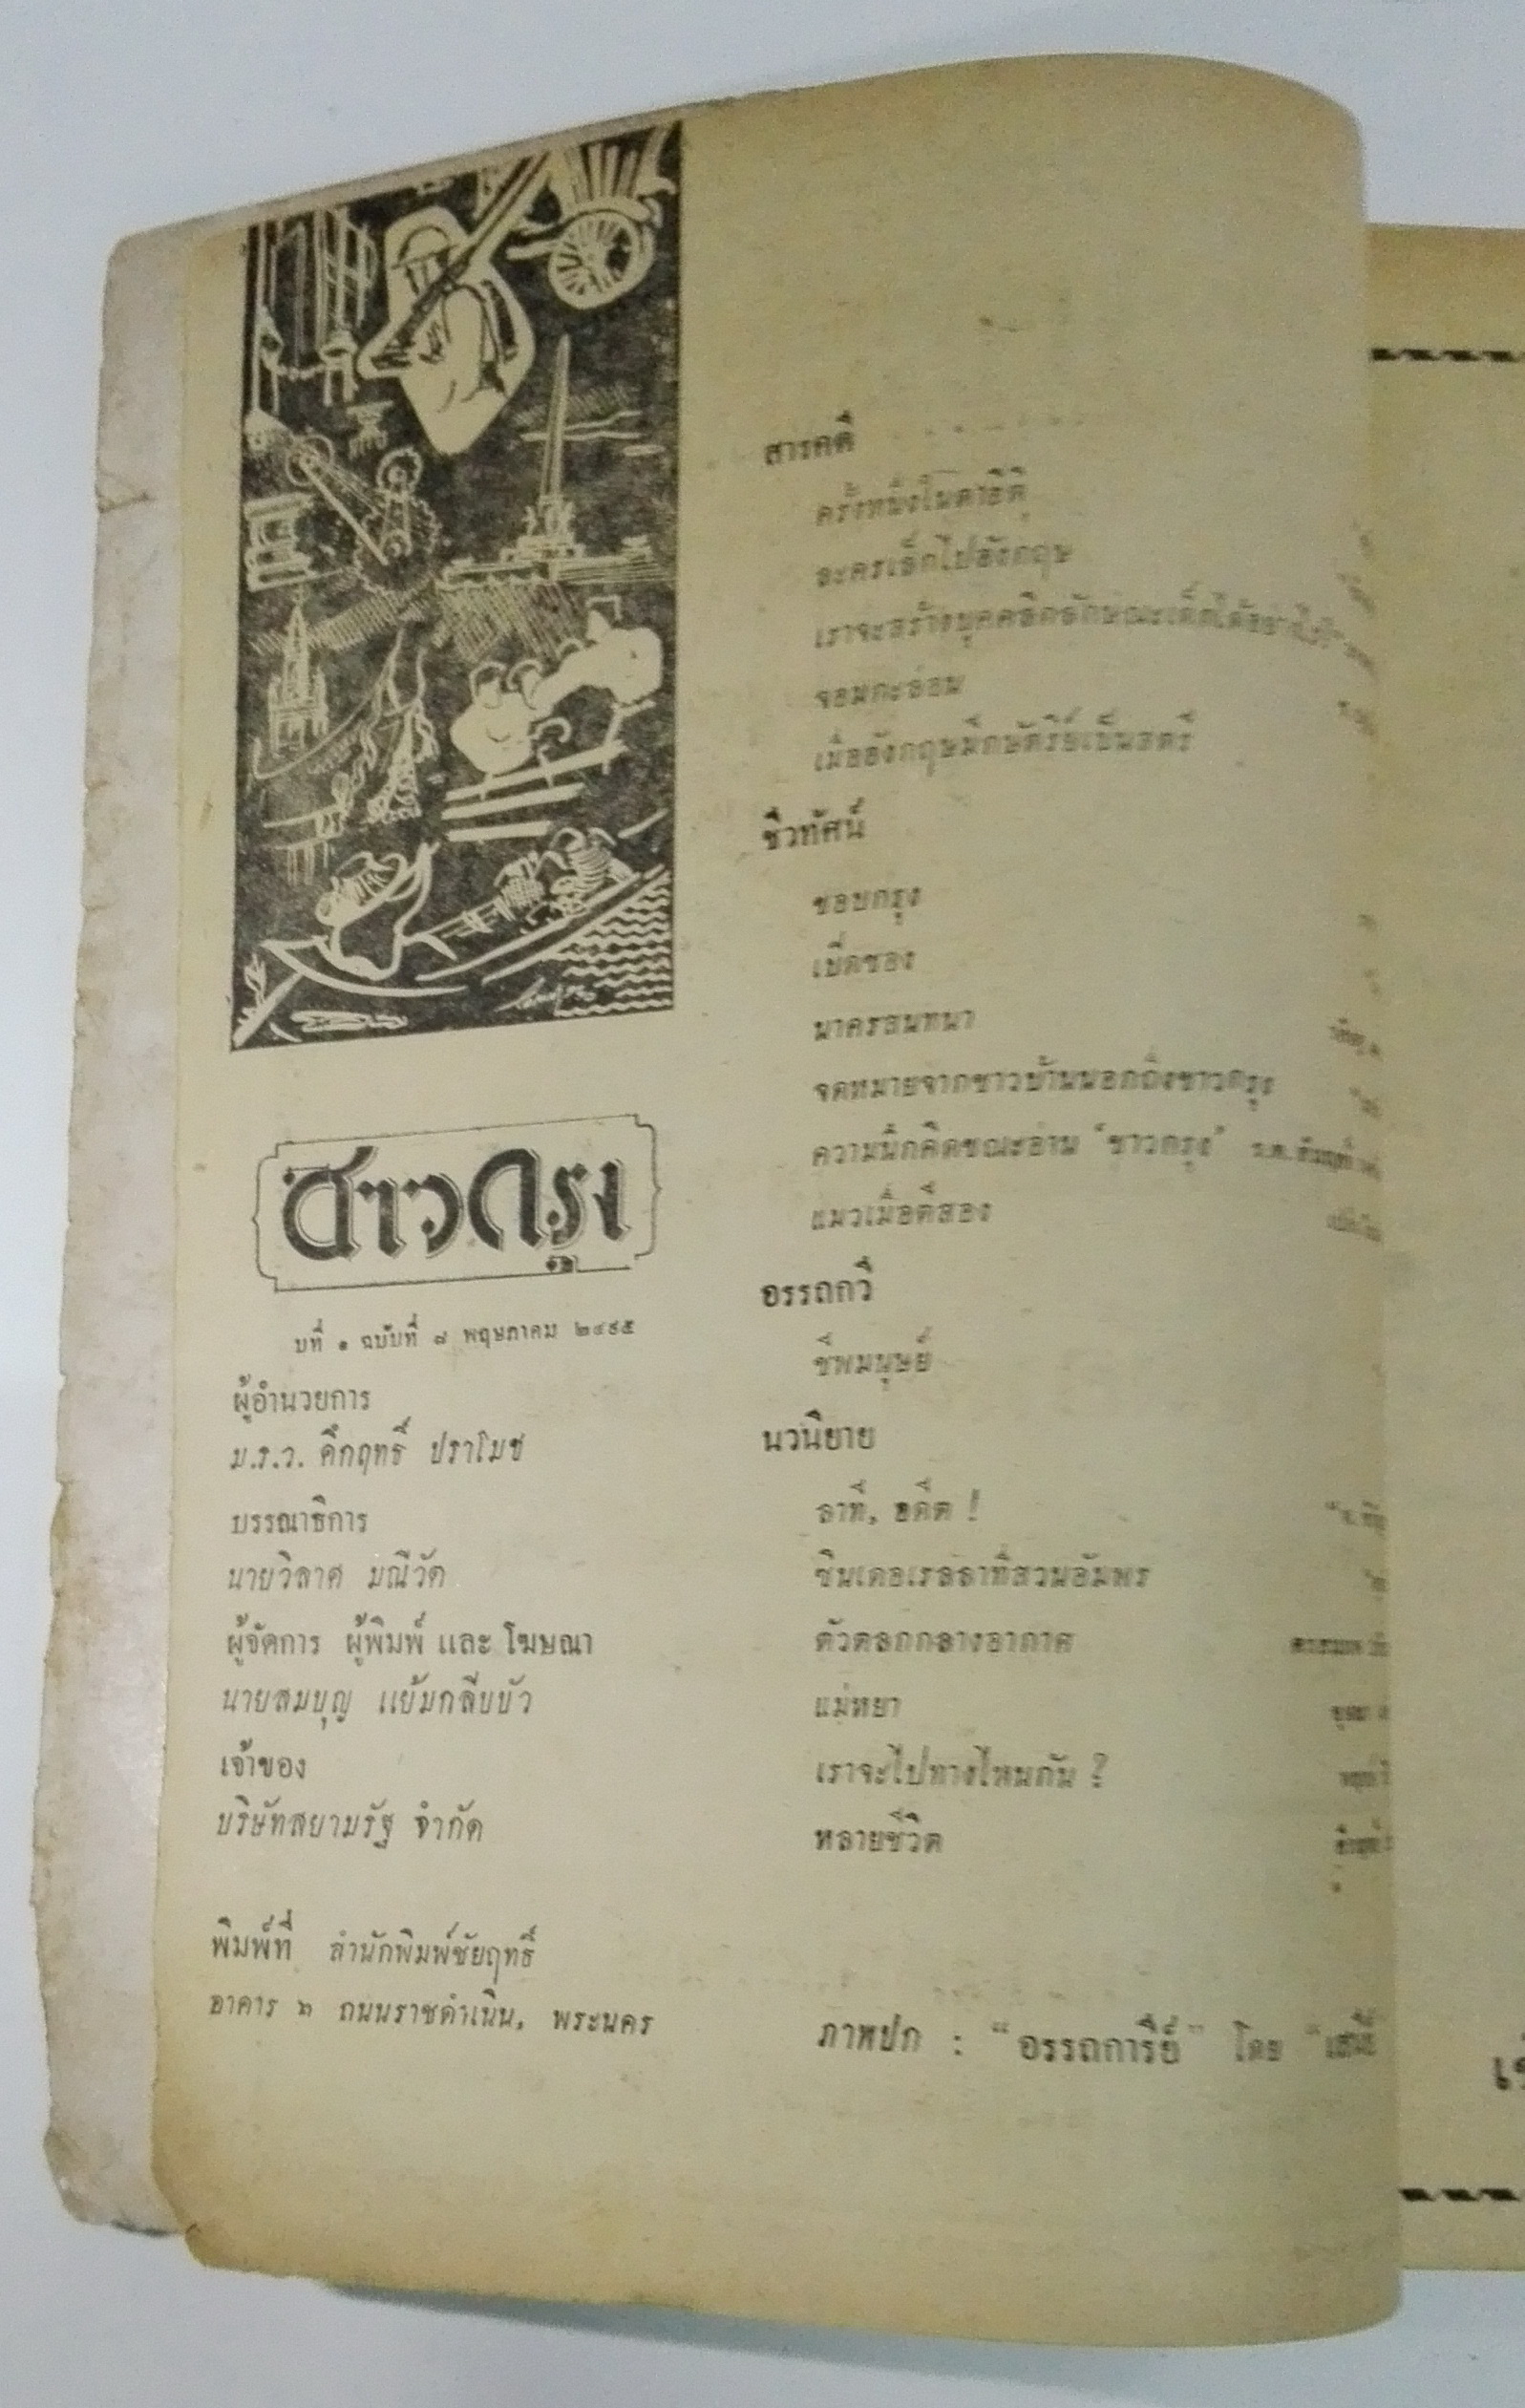 ชาวกรุง
บที่ ๑ ฉบับที่ ๘ พฤษภาคม ๒๔๙๕
ผู้อำนวยการ
ม.ร.ว. คึกฤทธิ์ ปราโมช
บรรณาธิการ
นายวิลาศ มณีวัต
ผู้จัดการ ผู้พิมพ์ และ โฆษณา
นายสมบุญ แย้มกลีบบัว
เจ้าของ
บริษัทสยามรัฐ จำกัด
พิมพ์ที่ สำนักพิมพ์ชัยฤทธิ์
อาคาร ๒ ถนนราชดำเนิน, พระนคร
สารคดี
ครั้งหนึ่งในตาฮิติ
ละครเล็กไปอังกฤษ
เราจะสร้างบุคคลิกลักษณะเด็กได้อย่างไร?
จอมกะล่อน
เมื่ออังกฤษมีกษัตริย์เป็นสตรี
ชีวทัศน์
ขอบกรุง
เปิดซอง
นาครสนทนา
จดหมายจากชาวบ้านนอกถึงชาวกรุง
ความนึกคิดขณะอ่าน "ชาวกรุง"
แมวเมื่อตีสอง
อรรถกวี
ชีพมนุษย์
นวนิยาย
ลาที, อดีต !
ซินเดอเรลลาที่สวนอัมพร
ตัวตลกกลางอากาศ
แม่หยา
เราจะไปทางไหนกัน ?
หลายชีวิต
ภาพปก : "อรรถการีย์" โดย